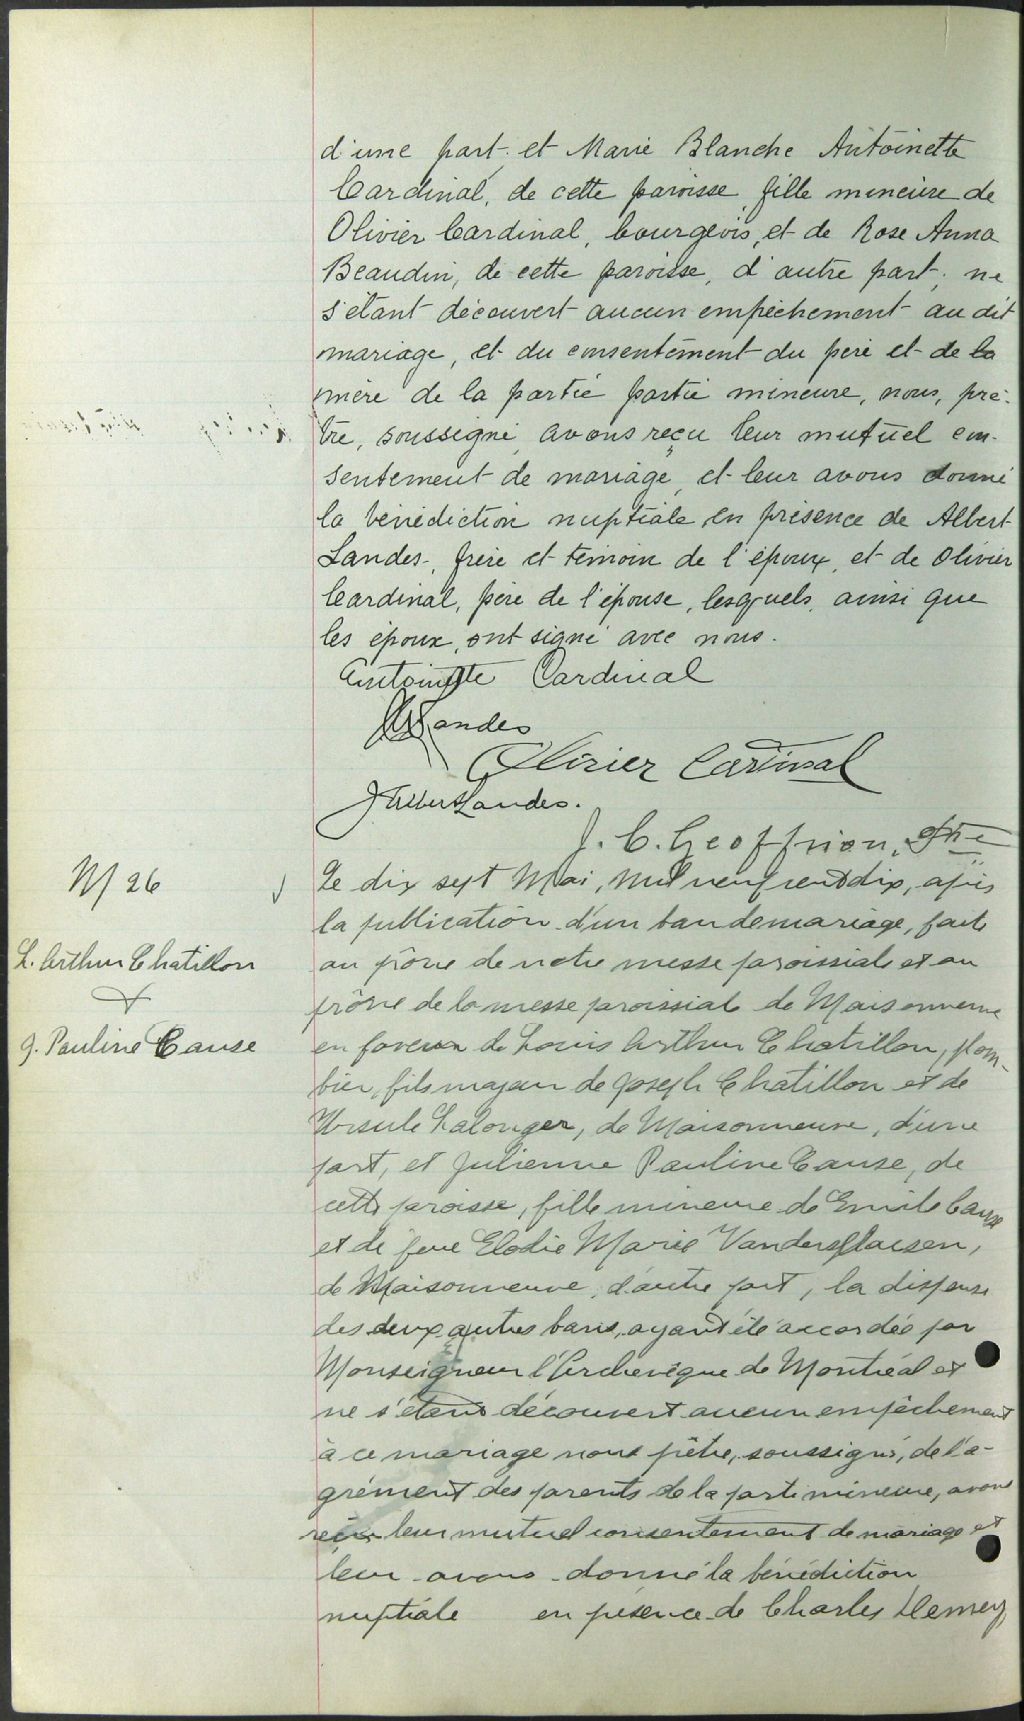 d'une part et Marie Blanche Antoinette
Cardinal, de cette paroisse, fille mineure de
Olivier Cardinal, bourgeois, et de Rose Anna
Beaudin, de cette paroisse, d'autre part, ne
s'étant découvert aucun empêchement au dit
mariage, et du consentement du père et de la
mère de la partie partie mineure, nous, prê-
tre, soussigné, avons reçu leur mutuel con-
sentement de mariage, et leur avons donné
la bénédiction nuptiale en présence de Albert
Landes, frère et témoin de l'époux, et de Olivier
Cardinal, père de l'épouse, lesquels, ainsi que
les époux, ont signé avec nous.
Antoinette Cardinal
Landes
Olivier Cardinal
J Albert Landes.
J. C. Geoffrion, Ptre
M 26
L. Arthur Chatillon
&
J. Pauline Cause
Le dix sept Mai, mil neuf cent dix, après
la publication d'un ban de mariage, faite
au prône de notre messe paroissiale et au
prône de la messe paroissiale de Maisonneuve
en faveur de Louis Arthur Chatillon, plom-
bier, fils majeur de Joseph Chatillon et de
Ursule Lalonger, de Maisonneuve, d'une
part, et Julienne Pauline Cause, de
cette paroisse, fille mineure de Emile Cause
et de feue Elodie Marie Vanderslaesen,
de Maisonneuve, d'autre part, la dispense
des deux autres bans, ayant été accordée par
Monseigneur l'Archevêque de Montréal et
ne s'étant découvert aucun empêchement
à ce mariage nous prêtre, soussigné, de l'a-
grément des parents de la partie mineure, avons
reçu leur mutuel consentement de mariage et
leur avons donné la bénédiction
nuptiale en présence de Charles Demey,